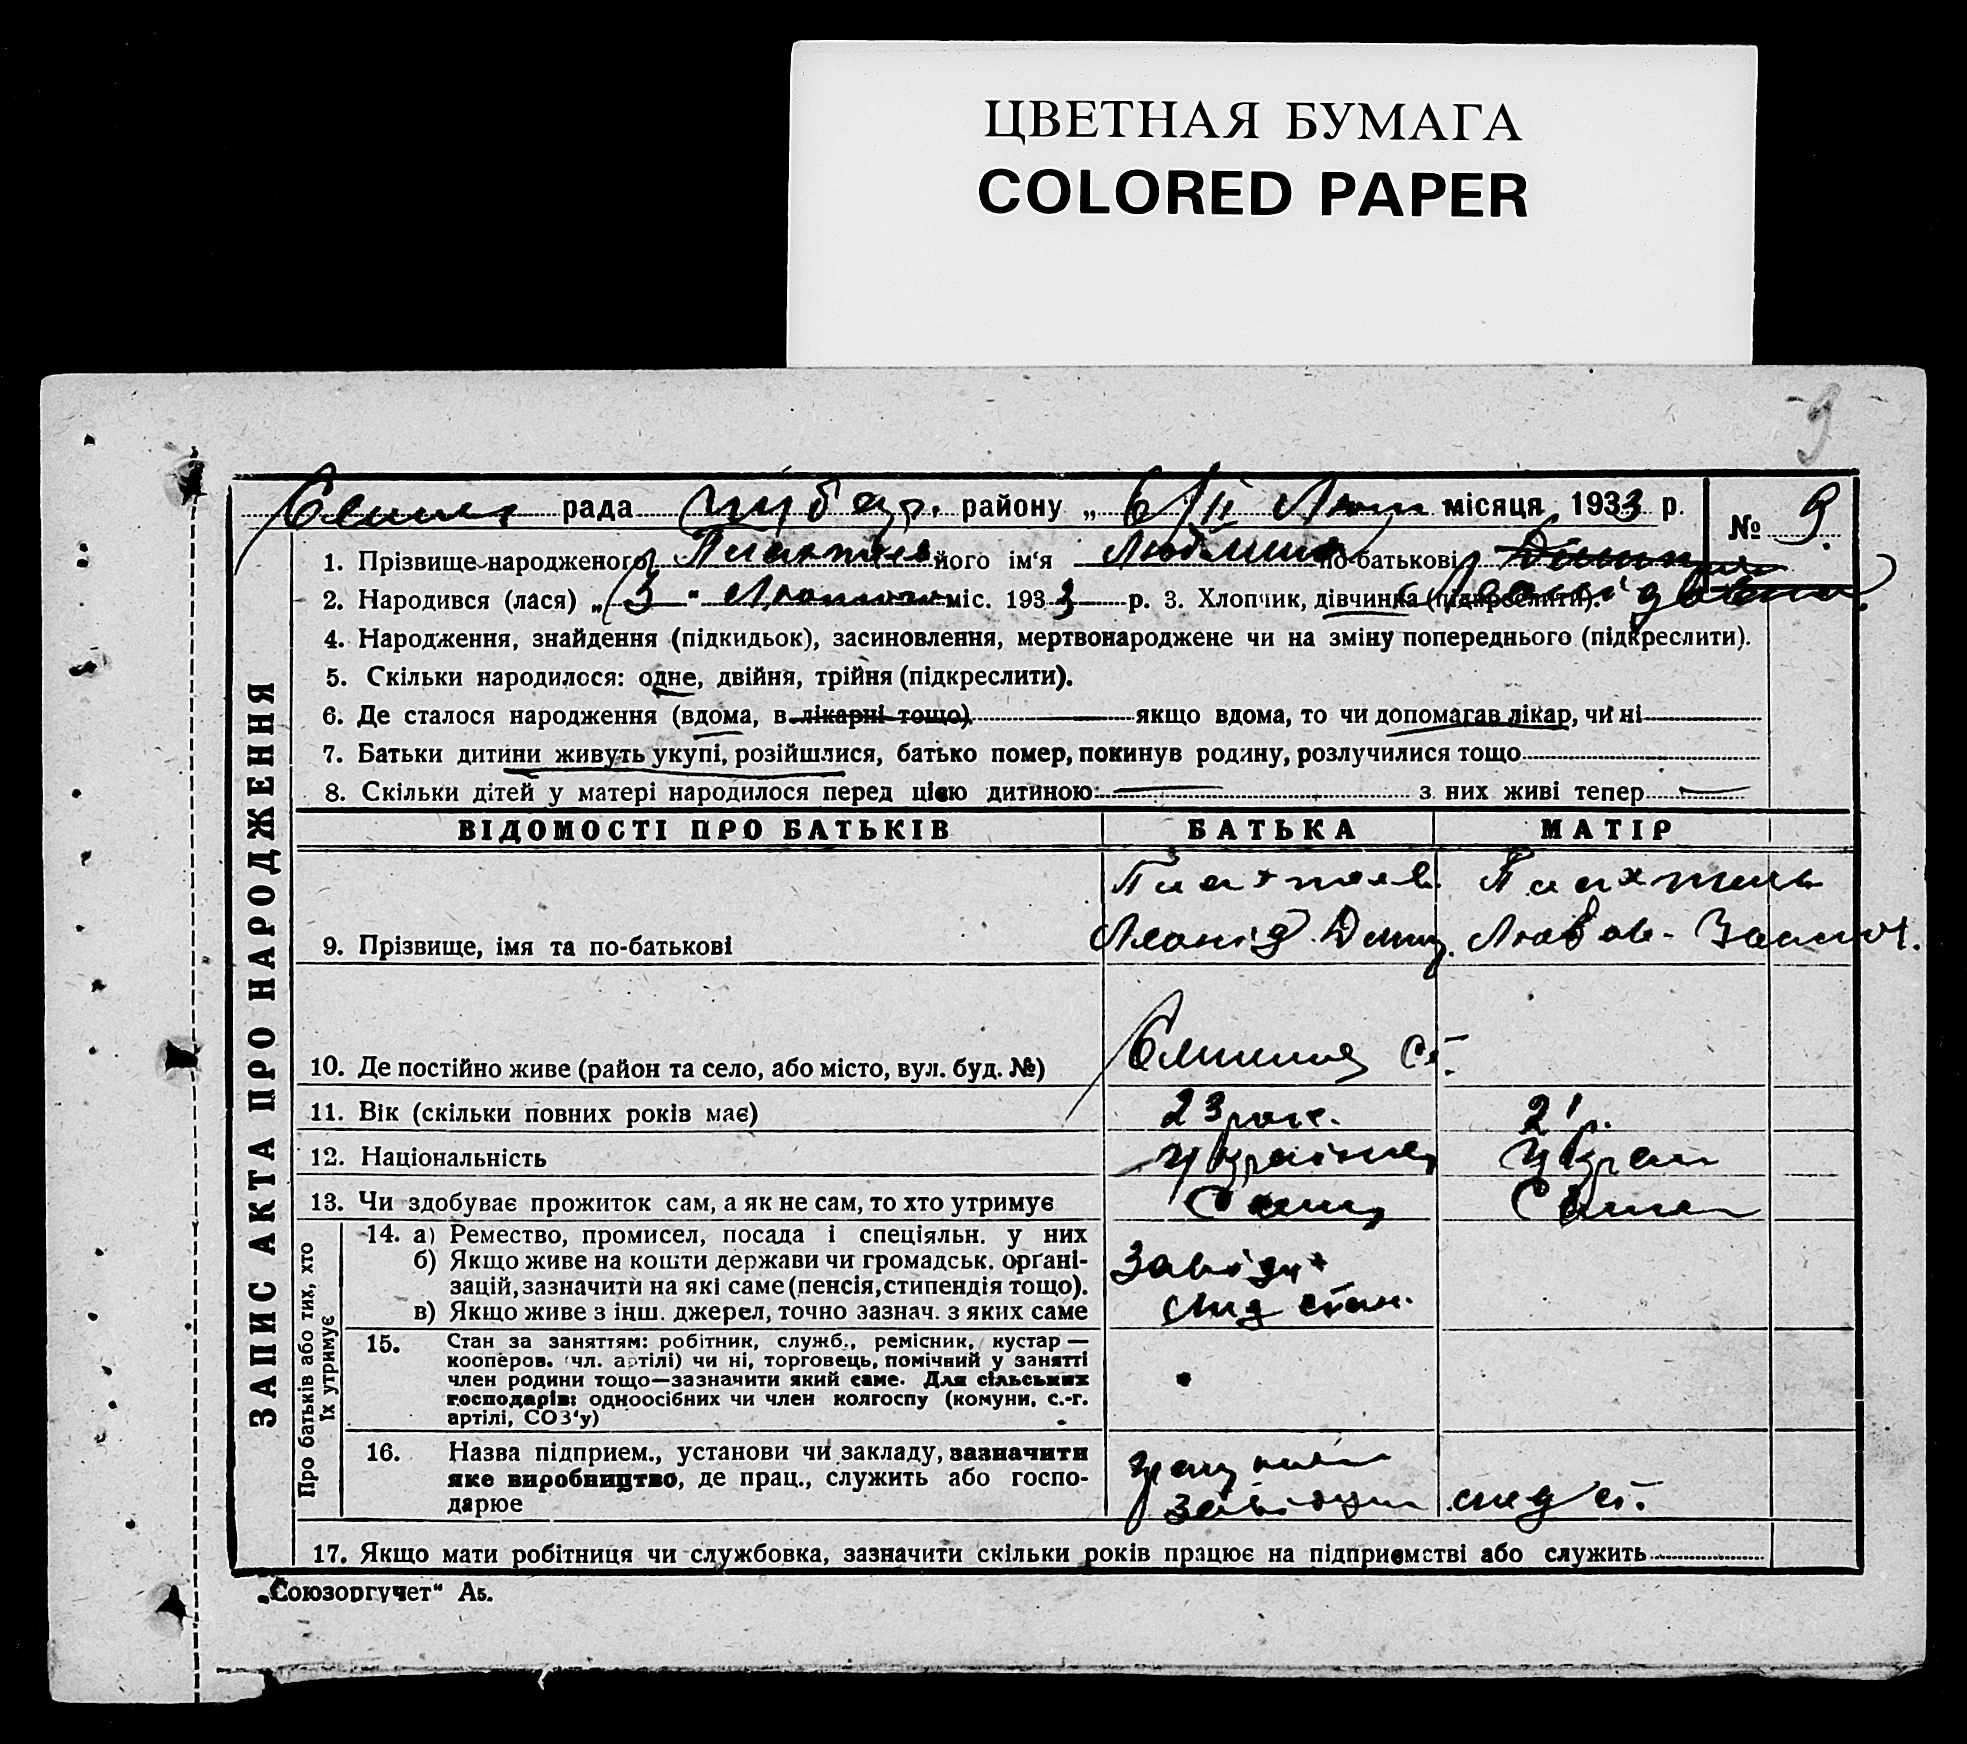 ЦВЕТНАЯ БУМАГА
COLORED PAPER
9
рада району „ 6/II Лют місяця 1933 р. № 9.
1. Прізвище народженого його ім‘я Людмила по-батькові
2. Народився (лася) „ 3 " Лютого міс. 1933 р. 3. Хлопчик, дівчинка (підкреслити). Леонідовна.
4. Народження, знайдення (підкидьок), засиновлення, мертвонароджене чи на зміну попереднього (підкреслити).
5. Скільки народилося: одне, двійня, трійня (підкреслити).
6. Де сталося народження (вдома, в лікарні тощо) якщо вдома, то чи допомагав лікар, чи ні
7. Батьки дитини живуть укупі, розійшлися, батько помер, покинув родину, розлучилися тощо
8. Скільки дітей у матері народилося перед цією дитиною — з них живі тепер —
ЗАПИС АКТА ПРО НАРОДЖЕННЯ
ВІДОМОСТІ ПРО БАТЬКІВ БАТЬКА МАТІР
9. Прізвище, імя та по-батькові Леонід Любов
10. Де постійно живе (район та село, або місто, вул. буд. №)
11. Вік (скільки повних років має) 23 рок. 21 р.
12. Національність Українец Украи
13. Чи здобуває прожиток сам, а як не сам, то хто утримує Сам Сама
Про батьків або тих, хто їх утримує
14. а) Ремество, промисел, посада і спеціяльн. у них
б) Якщо живе на кошти держави чи громадськ. орґані-
зацій, зазначити на які саме (пенсія, стипендія тощо).
в) Якщо живе з інш. джерел, точно зазнач. з яких саме
15. Стан за заняттям: робітник, служб., ремісник, кустар —
кооперов. чл. артілі) чи ні, торговець, помічний у занятті
член родини тощо—зазначити який саме. Для сільських
господарів: одноосібних чи член колгоспу (комуни, с.-г.
артілі, СОЗ‘у)
16. Назва підприєм., установи чи закладу, зазначити
яке виробництво, де прац., служить або госпо-
дарює
17. Якщо мати робітниця чи службовка, зазначити скільки років працює на підприємстві або служить
„Союзоргучет“ А5.